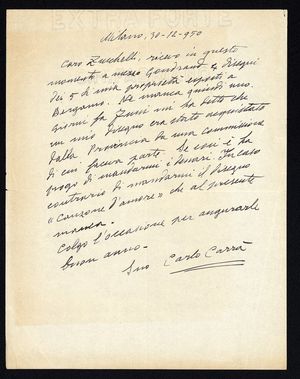 EXTRA FORTE
Milano, 30-12-950
Caro Zucchelli, ricevo in questo
momento a mezzo Gondrand 4 disegni
dei 5 di mia proprietà esposti a
Bergamo. Ne manca quindi uno.
Giorni fa Funi mi ha detto che
un mio disegno era stato acquistato
dalla Provincia da una commissione
di cui faceva parte. Se così è la
prego di mandarmi i denari. In caso
contrario di mandarmi il disegno
"Canzone d'amore" che al presente
manca.
Colgo l'occasione per augurarle
buon anno.
Suo Carlo Carrà